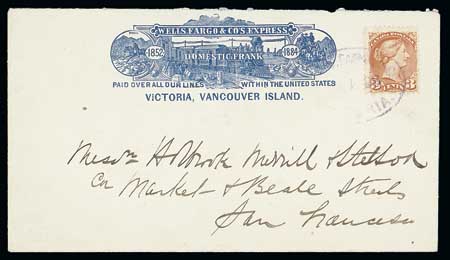 WELLS, FARGO & CO'S EXPRESS
1852 1884
DOMESTIC FRANK
PAID OVER ALL OUR LINES WITHIN THE UNITED STATES
VICTORIA, VANCOUVER ISLAND.
3 CENTS 3
Messrs Holbrook Merrill & Stetson
Cor Market & Beale Streets
San Francisco